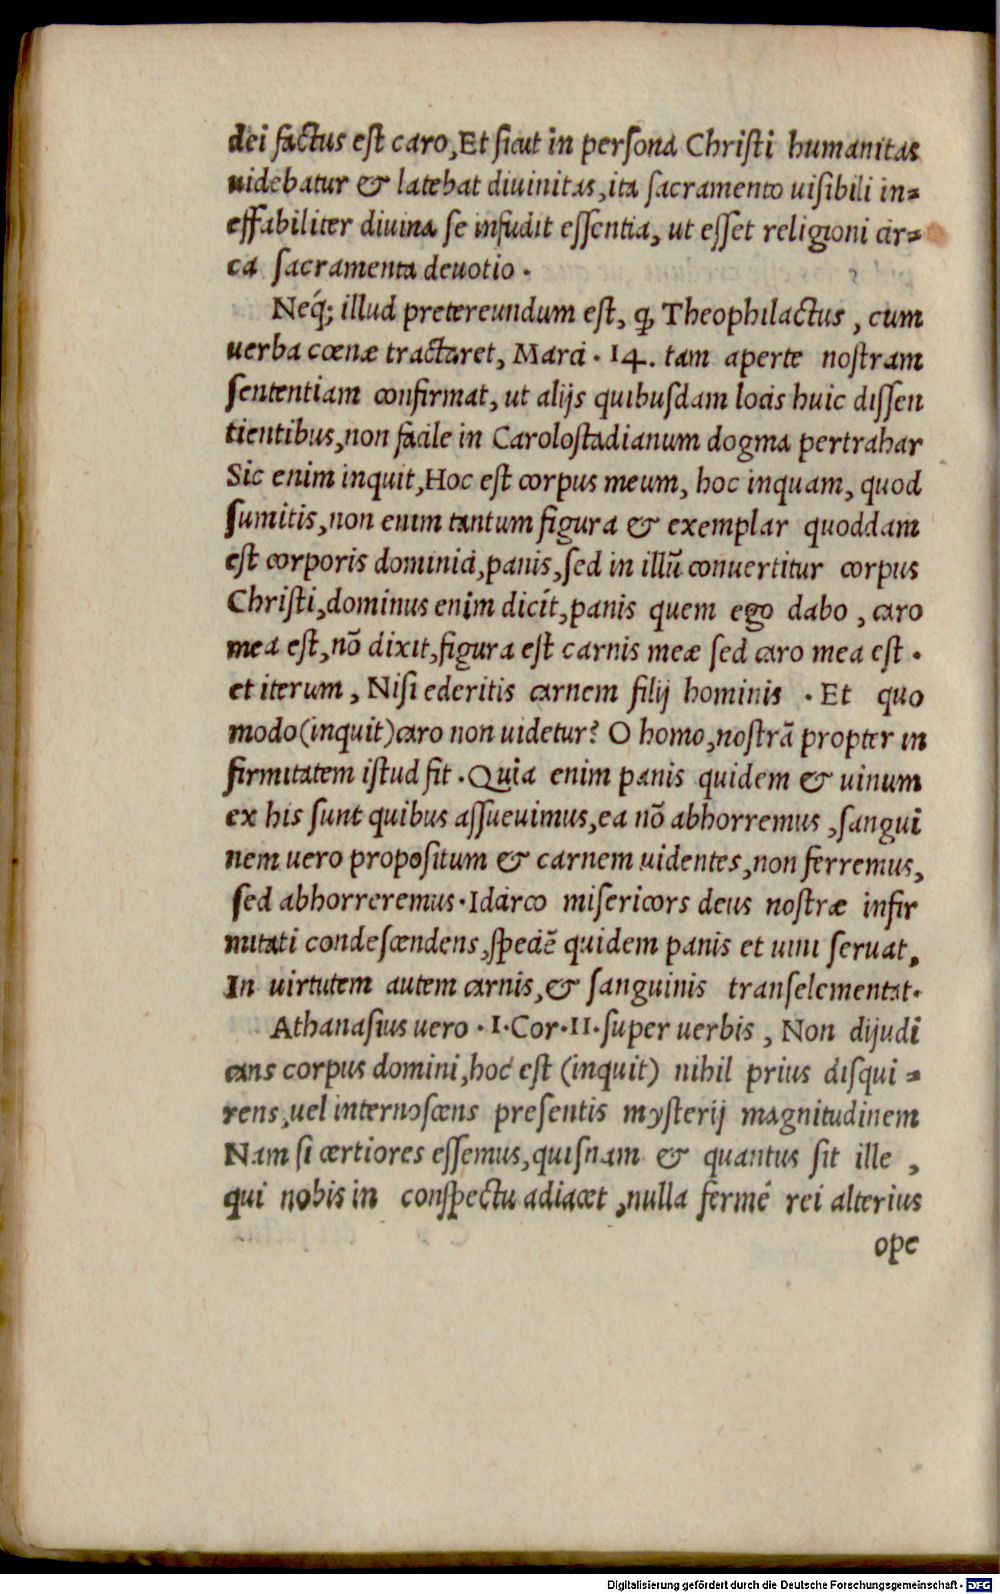 dei factus est caro, Et sicut in persona Christi humanitas
uidebatur & latebat diuinitas, ita sacramento uisibili in=
effabiliter diuina se infudit essentia, ut esset religioni cir=
ca sacramenta deuotio.
Neq; illud pretereundum est, ꝙ Theophilactus, cum
uerba cœnæ tractaret, Marci. 14. tam aperte nostram
sententiam confirmat, ut alijs quibusdam locis huic dissen
tientibus, non facile in Carolostadianum dogma pertrahar
Sic enim inquit, Hoc est corpus meum, hoc inquam, quod
sumitis, non enim tantum figura & exemplar quoddam
est corporis dominici, panis, sed in illũ conuertitur corpus
Christi, dominus enim dicit, panis quem ego dabo, caro
mea est, nõ dixit, figura est carnis meæ sed caro mea est.
et iterum, Nisi ederitis carnem filij hominis. Et quo
modo (inquit) caro non uidetur? O homo, nostrã propter in
firmitatem istud fit. Quia enim panis quidem & uinum
ex his sunt quibus assueuimus, ea nõ abhorremus, sangui
nem uero propositum & carnem uidentes, non ferremus,
sed abhorreremus. Idcirco misericors deus nostræ infir
mitati condescendens, speciẽ quidem panis et uini seruat,
In uirtutem autem carnis, & sanguinis transelementat.
Athanasius uero. 1. Cor. 11. super uerbis, Non dijudi
cans corpus domini, hoc est (inquit) nihil prius disqui=
rens, uel internoscens presentis mysterij magnitudinem
Nam si certiores essemus, quisnam & quantus sit ille,
qui nobis in conspectu adiacet, nulla fermé rei alterius
ope
Digitalisierung gefördert durch die Deutsche Forschungsgemeinschaft - DFG